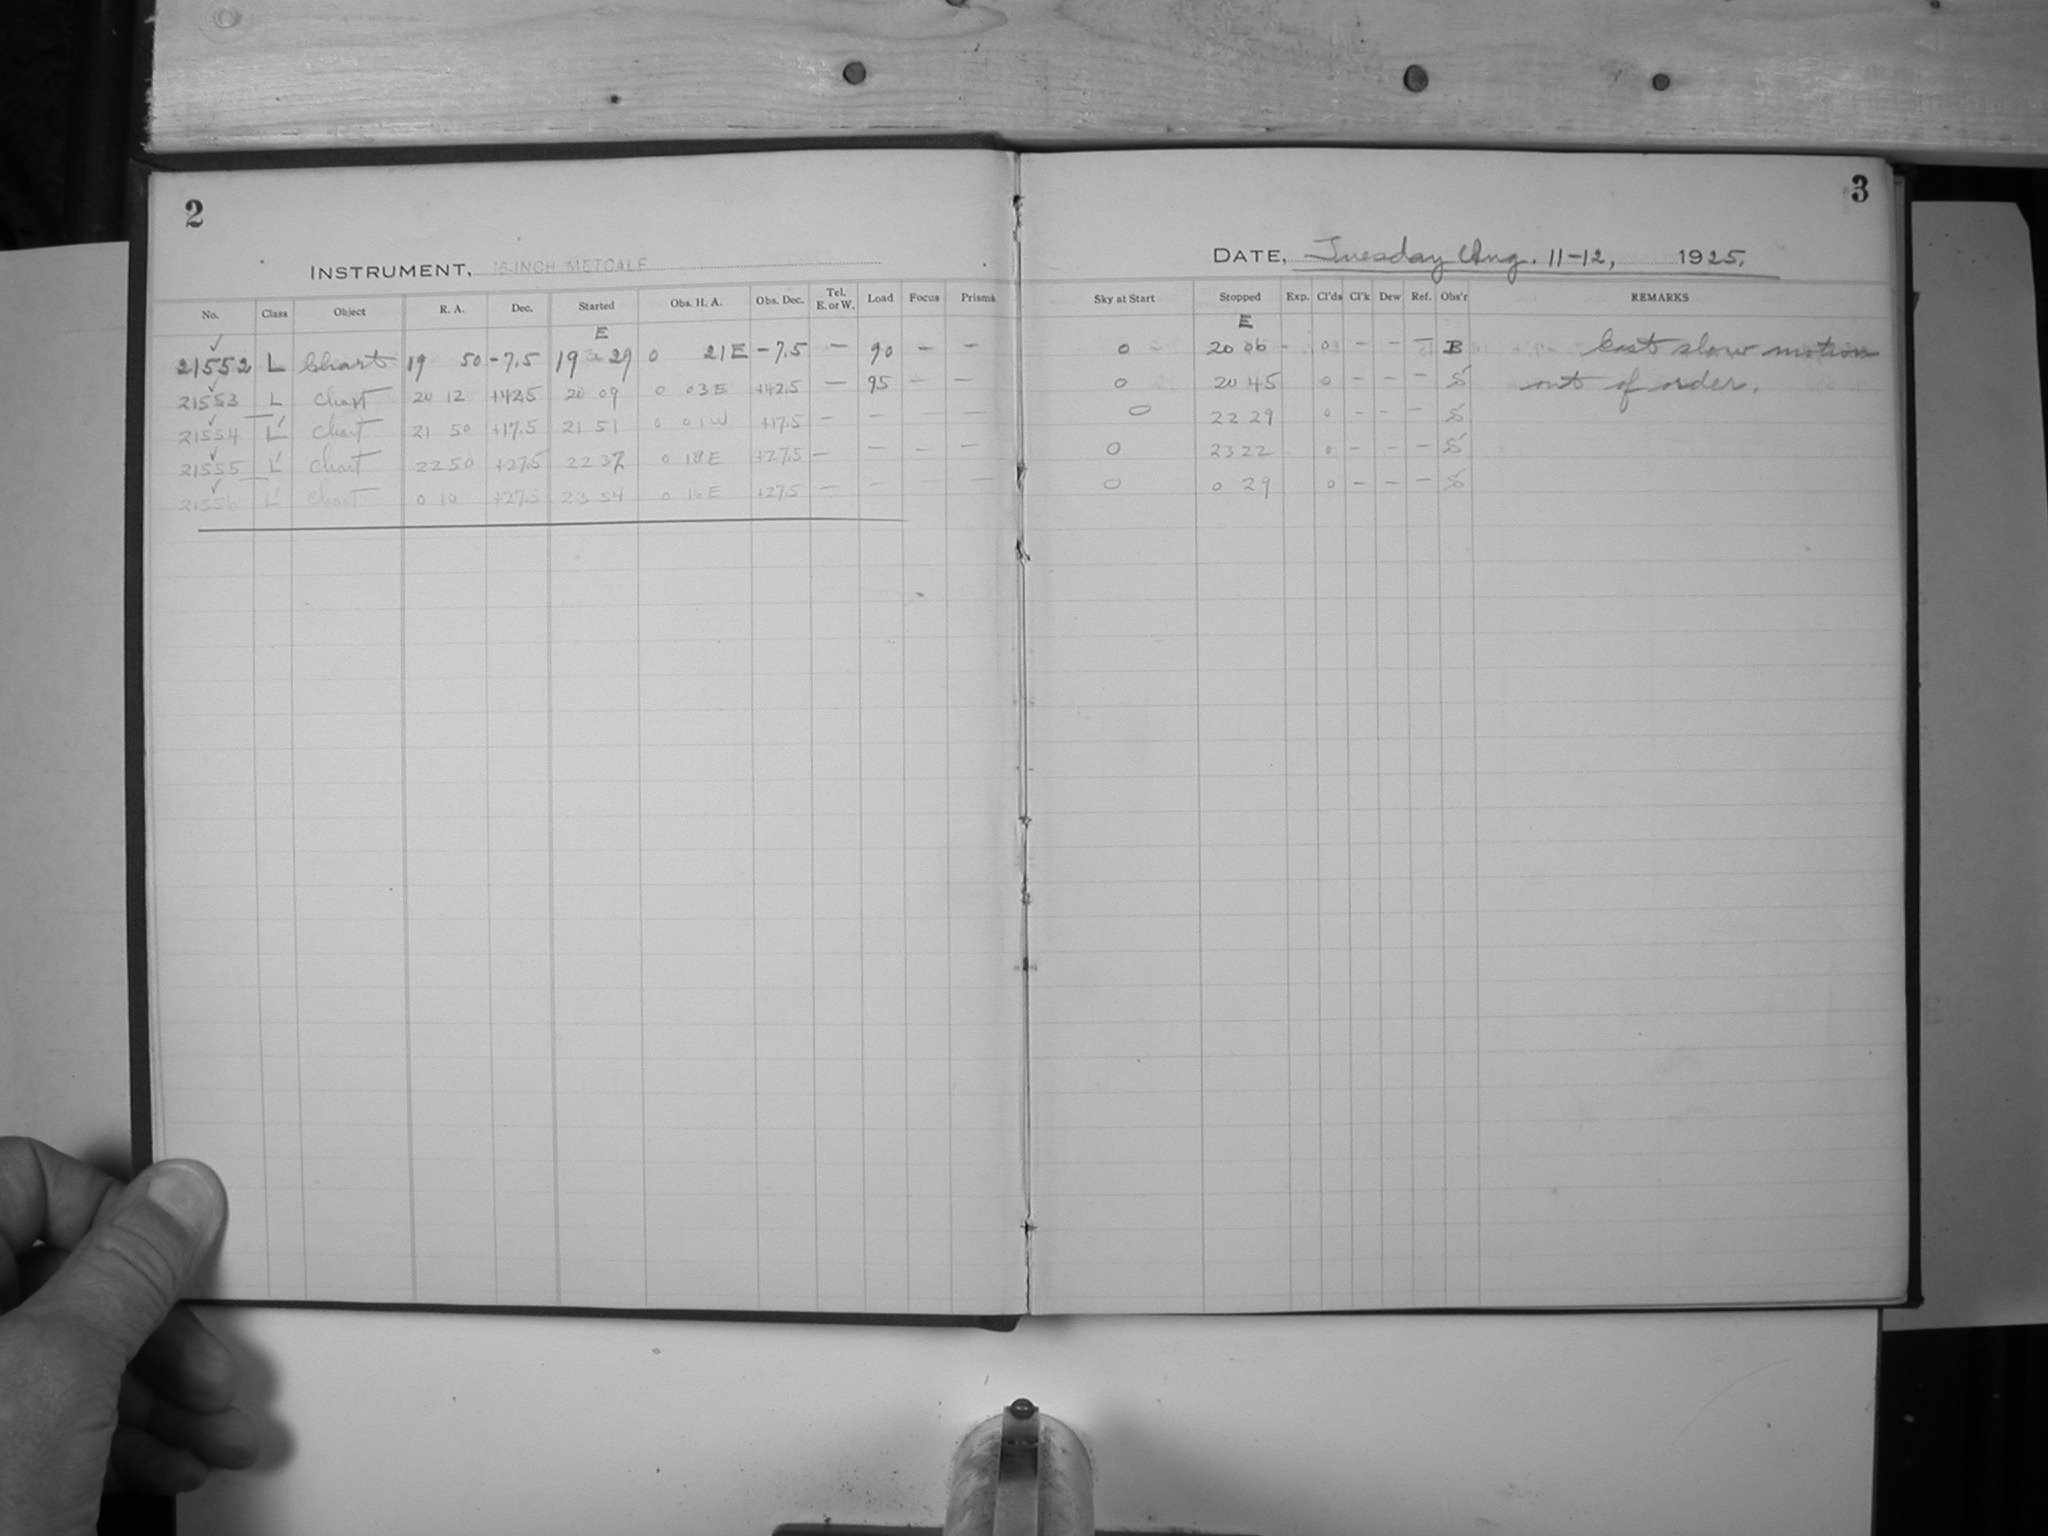 2
INSTRUMENT, 16-INCH METCALF
No. Class Object R. A. Dec. Started Obs. H. A. Obs. Dec. Tel. E. or W. Load Focus Prisms
E
21552 L Chart 19 50 -7.5 19 29 0 21 E -7.5 - 90 - -
21553 L Chart 20 12 +42.5 20 09 0 03 E +42.5 - 95 - -
21554 L Chart 21 50 +17.5 21 51 0 01 W +17.5 - - - -
21555 L Chart 22 50 +27.5 22 32 0 18 E +27.5 - - - -
21556 L Chart 0 10 +27.5 23 54 0 16 E +27.5 - - - -
3
DATE, Tuesday Aug. 11-12, 1925.
Sky at Start Stopped Exp. Cl'ds Cl'k Dew Ref. Obs'r REMARKS
E
0 20 06 - 0 - - - B East slow motion
0 20 45 0 - - - S out of order.
0 22 29 0 - - - S
0 23 22 0 - - - S
0 0 29 0 - - - S